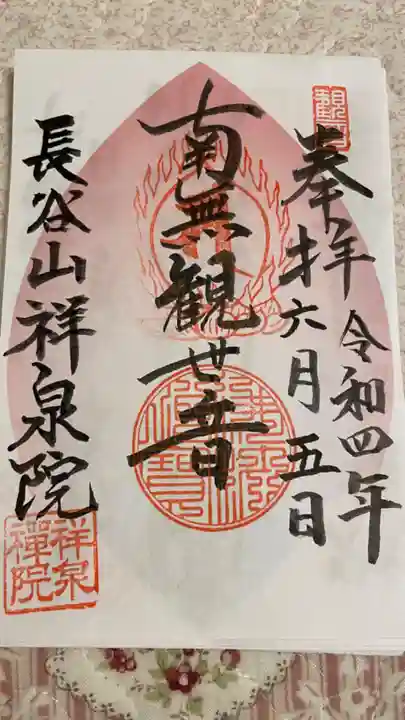 観音
奉拝
令和四年
六月五日
南無観世音
長谷山祥泉院
祥泉禅院